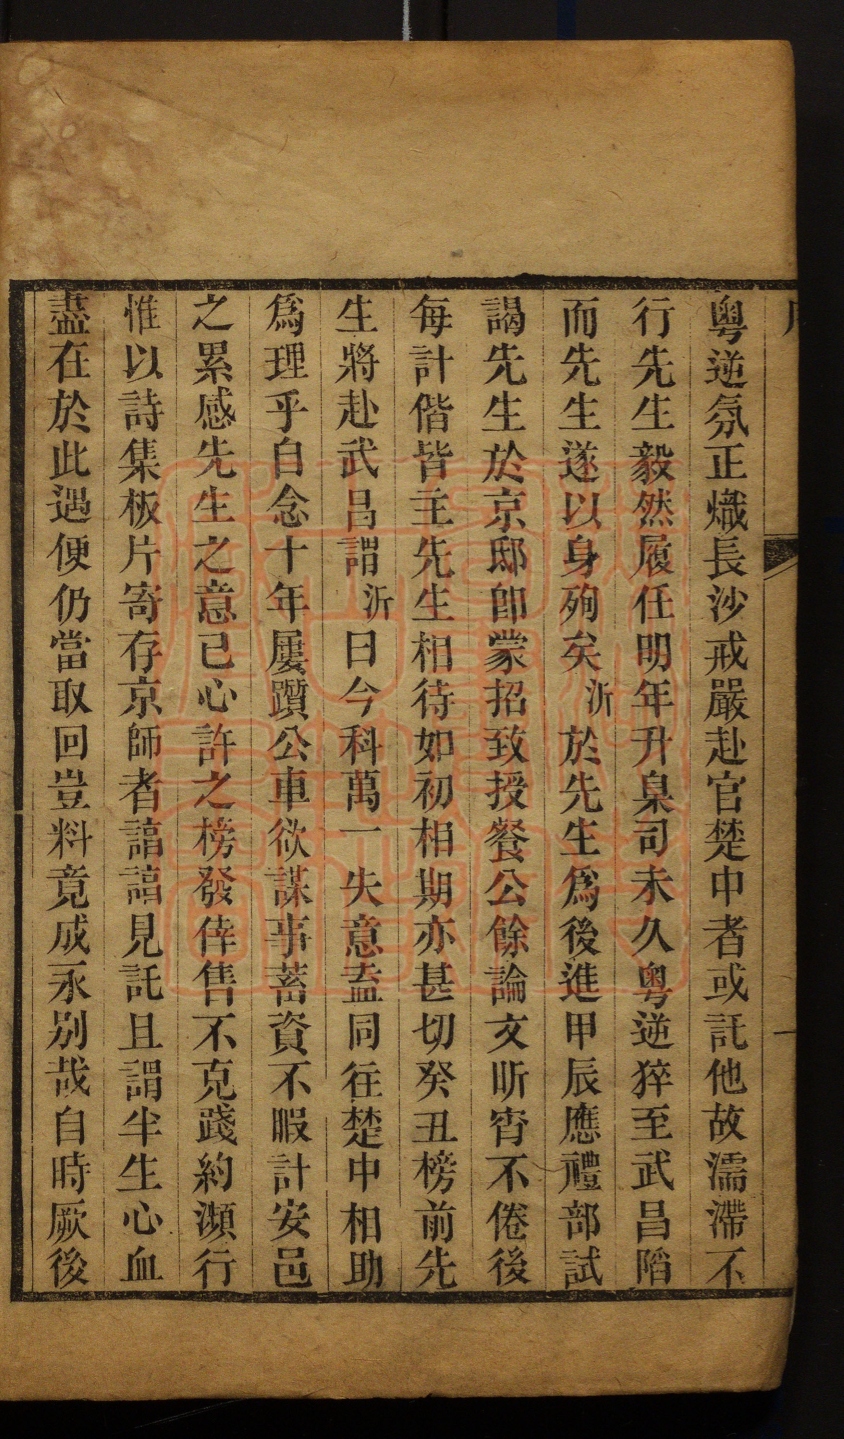 粵逆氛正熾長沙戒嚴赴官楚中者或託他故濡滯不
行先生毅然履任明年升臬司未久粵逆猝至武昌陷
而先生遂以身殉矣沂於先生爲後進甲辰應禮部試
謁先生於京邸卽蒙招致授餐公餘論文昕宵不倦後
每計偕皆主先生相待如初相期亦甚切癸丑榜前先
生將赴武昌謂沂曰今科萬一失意盍同往楚中相助
爲理乎自念十年屢躓公車欲謀事蓄資不暇計安邑
之累感先生之意已心許之榜發倖售不克踐約瀕行
惟以詩集板片寄存京師者諄諄見託且謂半生心血
盡在於此遇便仍當取回豈料竟成永別哉自時厥後